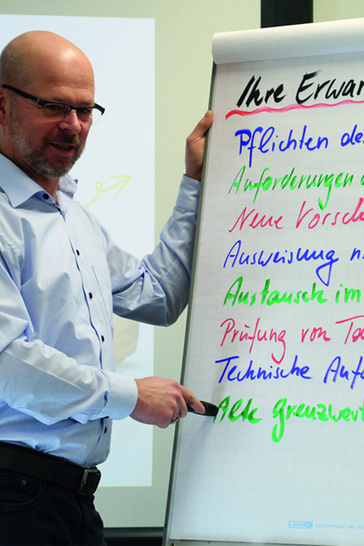 Ihre Erwar
Pflichten des
Anforderungen
Neue Vorsch
Ausweisung n
Austausch im
Prüfung von Ta
Technische Anfo
Alte Grenzwert